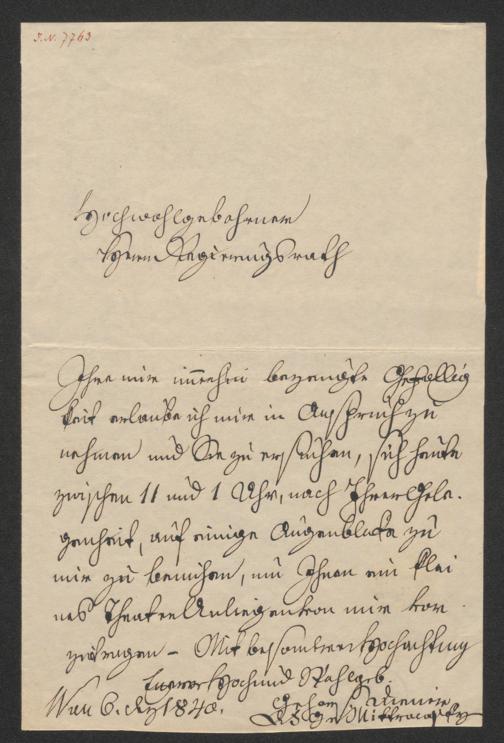 I.N. 7763
Hochwohlgebohrner
Herr Regierungsrath
Ihre mir immerhin bezeugte Gefällig
keit erlaube ich mir in Anspruch zu
nehmen und Sie zu ersuchen, sich heute
zwischen 11 und 1 Uhr, nach Ihrer Gele.
genheit, auf einige Augenblicke zu
mir zu bemühen, um Ihnen ein klei
nes Theater Anliegen von mir vor
zutragen – Mit besonderer Hochachtung
Euer Hoch und Wohlgeb.
Wien 6. 1840. gehors Dienerin